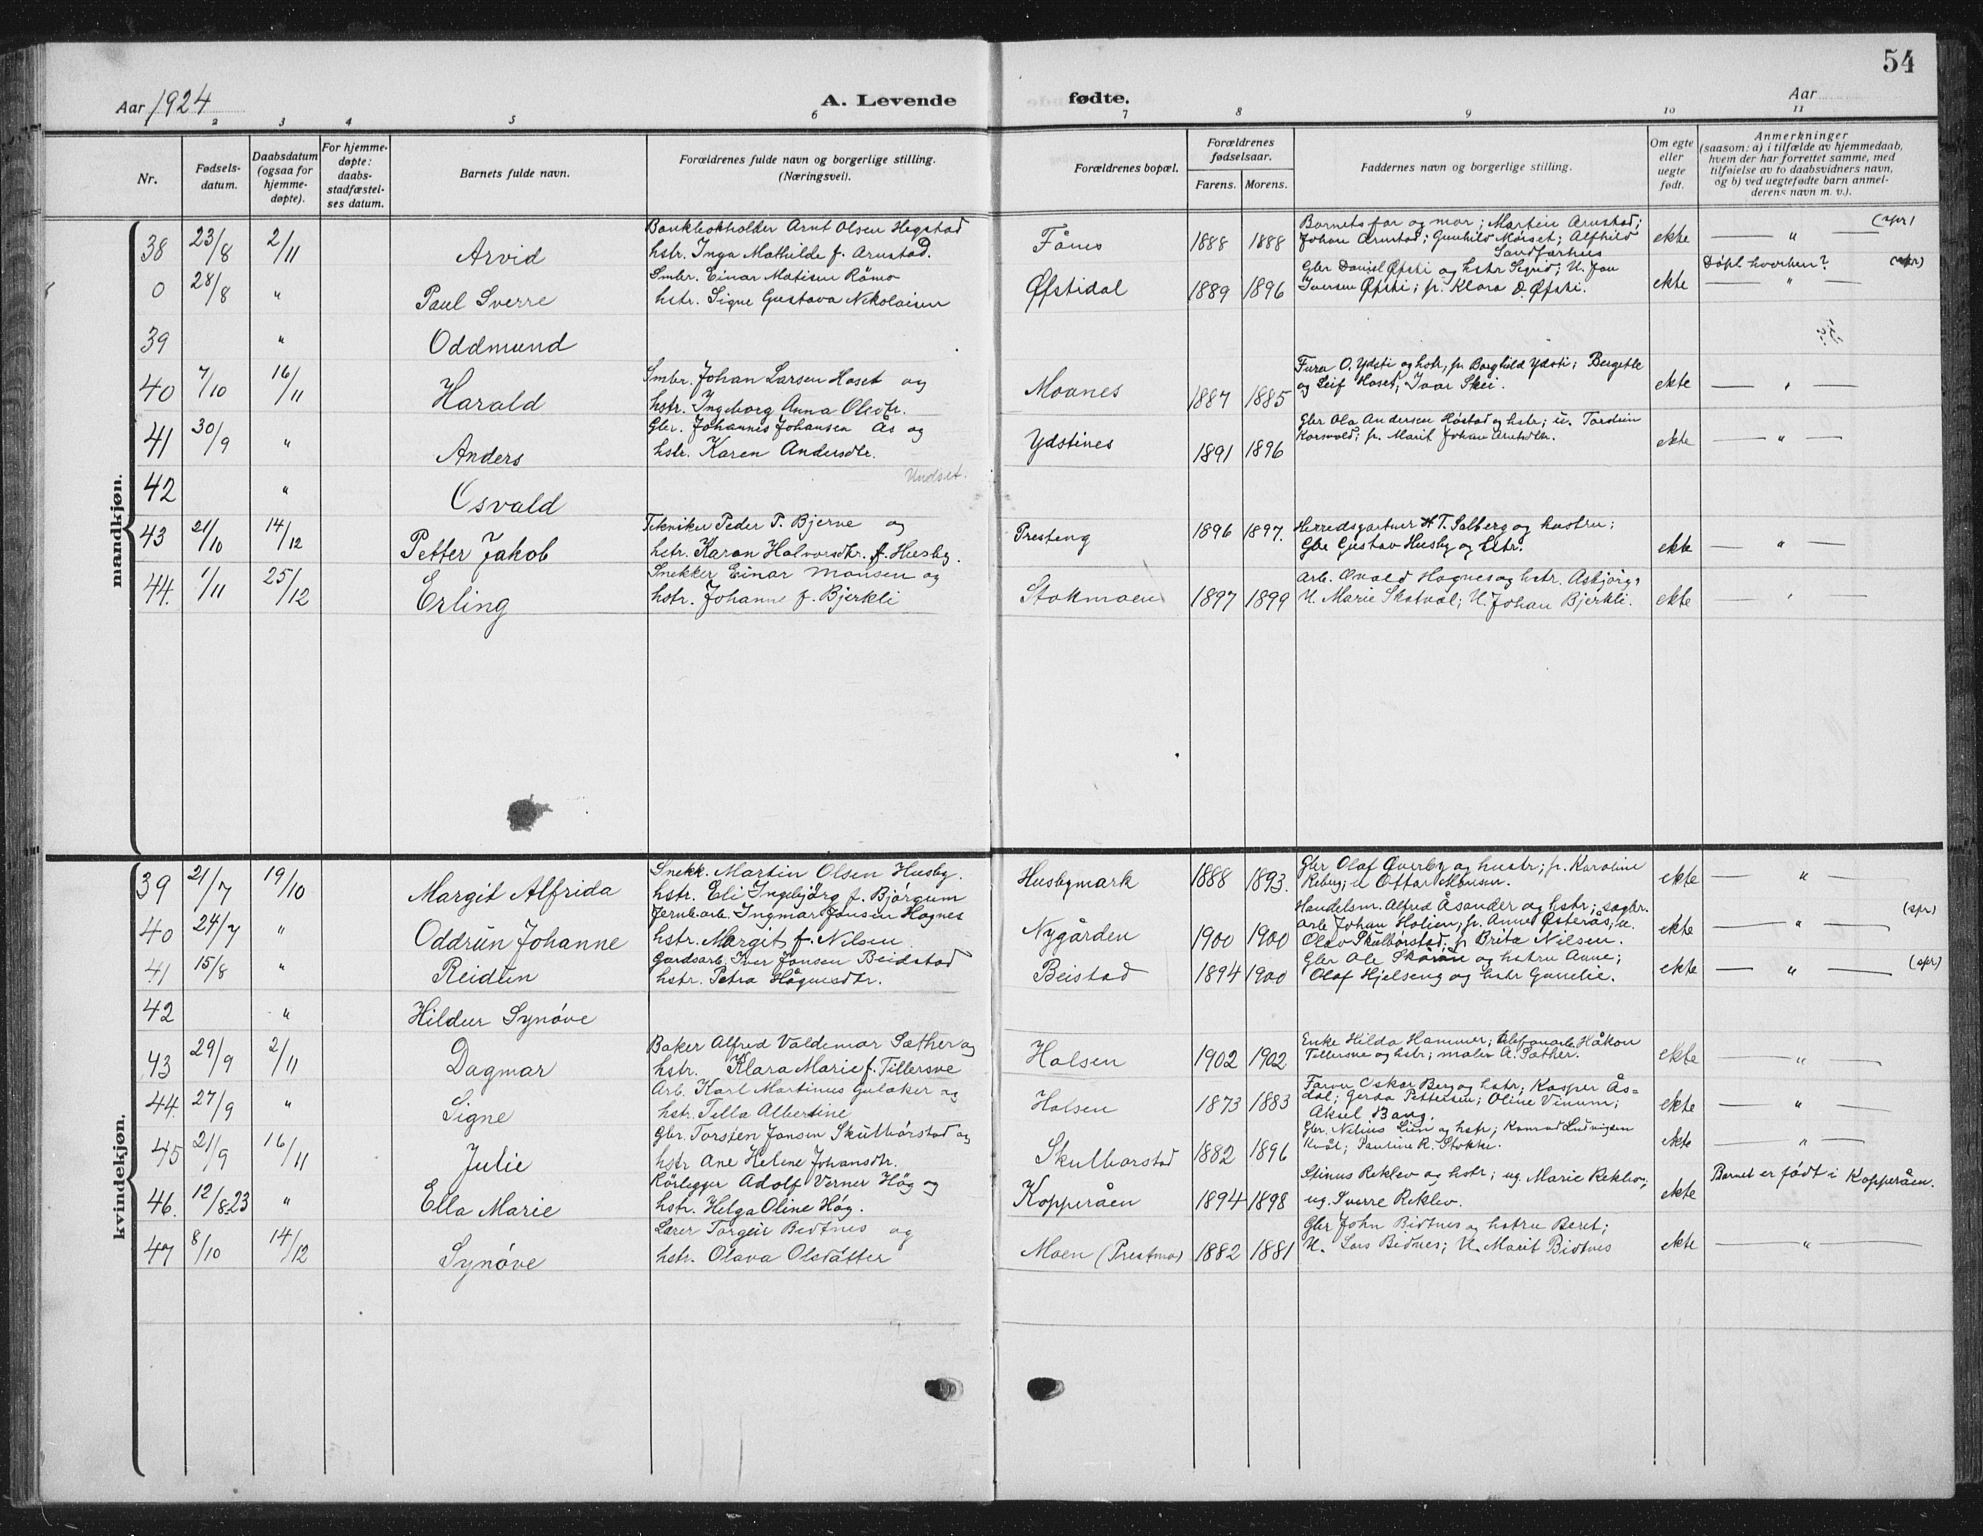 54
Aar 1924
A. Levende fødte.
Aar
2 3 4 5 6 7 8 9 10 11
Nr.
Fødsels-
datum.
Daabsdatum
(ogsaa for
hjemme-
døpte).
For hjemme-
døpte:
daabs-
stadfæstel-
ses datum.
Barnets fulde navn.
Forældrenes fulde navn og borgerlige stilling.
(Næringsvei).
Forældrenes bopæl.
Forældrenes
fødselsaar.
Farens. Morens.
Faddernes navn og borgerlige stilling.
Om egte
eller
uegte
født.
Anmerkninger
(saasom: a) i tilfælde av hjemmedaab,
hvem der har forrettet samme, med
tilføielse av to daabsvidners navn,
og b) ved uegtefødte barn anmel-
derens navn m. v.).
mandkjøn.
38 23/8 2/11 Arvid
Bankbokholder Arnt Olsen Hegstad
hstr. Inga Mathilde f. Arnstad.
Fånes 1888 1888
Barnets far og mor; Martin Arnstad;
Johan Arnstad; Gunhild Morset; Alfhild
Sandfærhus
ekte — " —
0 28/8 " Paul Sverre
Smbr. Einar Matisen Råmo
hstr. Signe Gustava Nikolaisen
Øfstidal 1889 1896
Gbr Daniel Øfsti og hstr Sigrid; U. Jon
Iversen Øfsti; pr. Klara D. Øfsti.
ekte Døpt hvorhen?
— " —
39 " Oddmund
40 7/10 16/11 Harald
Smbr. Johan Larsen Hoset og
hstr. Ingeborg Anna Olsdtr.
Moanes 1887 1885
O. Ydsti og hstr, pr. Borghild Ydsti;
og Leif Hoset; Ivar Skei.
ekte — " —
41 30/9 " Anders
Gbr. Johannes Johansen Ås og
hstr. Karen Andersdtr.
Ydstines 1891 1896
Gbr Ola Andersen Høstad og hstr; u. Tordein
Korsvold; pr. Marit Johan
ekte — " —
42 " Osvald
Undset.
43 21/10 14/12 Petter Jakob
Tekniker Peder P. Bjerve og
hstr. Karen Halvorsdtr. f. Husby.
Presteng 1896 1897.
Herredsgartner H T. Solberg og hustru;
Gbr Gustav Husby og hstr.
ekte — " —
44. 1/11 25/12 Erling
Snekker Einar Monsen og
hstr. Johanne f. Bjerkli
Stokmoen 1897 1899
arb. Hognes og hstr. Asbjørg,
U. Marie Skatval; U. Johan Bjerkli.
ekte — " —
kvindekjøn.
39 21/7 19/10 Margit Alfrida
Snekk. Martin Olsen Husby.
hstr. Eli Ingebjørg f. Bjørgum
Husbymark 1888 1893.
Gbr Olaf Øverby og hustr; pr. Karoline
Reberg; u Ottar Monsen.
ekte — " —
40 24/7 " Oddrun Johanne
Jernbarb. Ingmar Jonsen Hognes
hstr. Margit f. Nilsen.
Nygården 1900 1900
Handelsm. Alfred Åsander og hstr; sagbr.
arb Johan Holien; pr. Anne Østerås; u.
Olav Skulborstad; pr Brita Nilsen.
ekte — " —
41 15/8 " Reidun
Gardsarb. Iver Jonsen Beidstad
hstr. Petra Hågensdtr.
Beistad 1894 1900
Gbr Ole og hstru Anne;
Olaf Hjelseng og hstr Gunelie.
ekte — " —
42 " Hildur Synøve
43 29/9 2/11 Dagmar
Baker Alfred Valdemar Sæther og
hstr. Klara Marie f. Tillersve
Halsen 1902 1902
Enke Hilda Hammer; Håkon
Tillersve og hstr; maler A. Sæther.
ekte — " —
44. 27/9 " Signe
Arb. Karl Martinus Gulaker og
hstr. Tilla Albertine
Halsen 1873 1883
Farver Oskar Berg og hstr; Kasper Ås-
dal; Gerda Pettersen; Oline Vinum;
Aksel Bang.
ekte — " —
45 21/9 16/11 Julie
Gbr. Torsten Jonsen Skulborstad og
hstr Ane Helene Johansdtr.
Skulborstad 1882 1896
Gbr. Nilius Lien og hstr; Konrad Ludvigsen
Kvål; Pauline R. Stokke.
ekte — " —
46. 12/8 23 " Ella Marie
Rørlegger Adolf Verner Høg og
hstr. Helga Oline Høg.
Kopperåen 1894 1898
Stinus Reklev og hstr; ug. Marie Reklev,
ug. Sverre Reklev.
ekte Barnet er født i Kopperåen.
47 8/10 14/12 Synøve
Lærer Torgeir Bidtnes og
hstr. Olava Olsdatter
Moen (Prestmo) 1882 1881
Gbr John Bidtnes og hstru Beret;
U. Lars Bidnes; U. Marit Bidtnes
ekte — " —